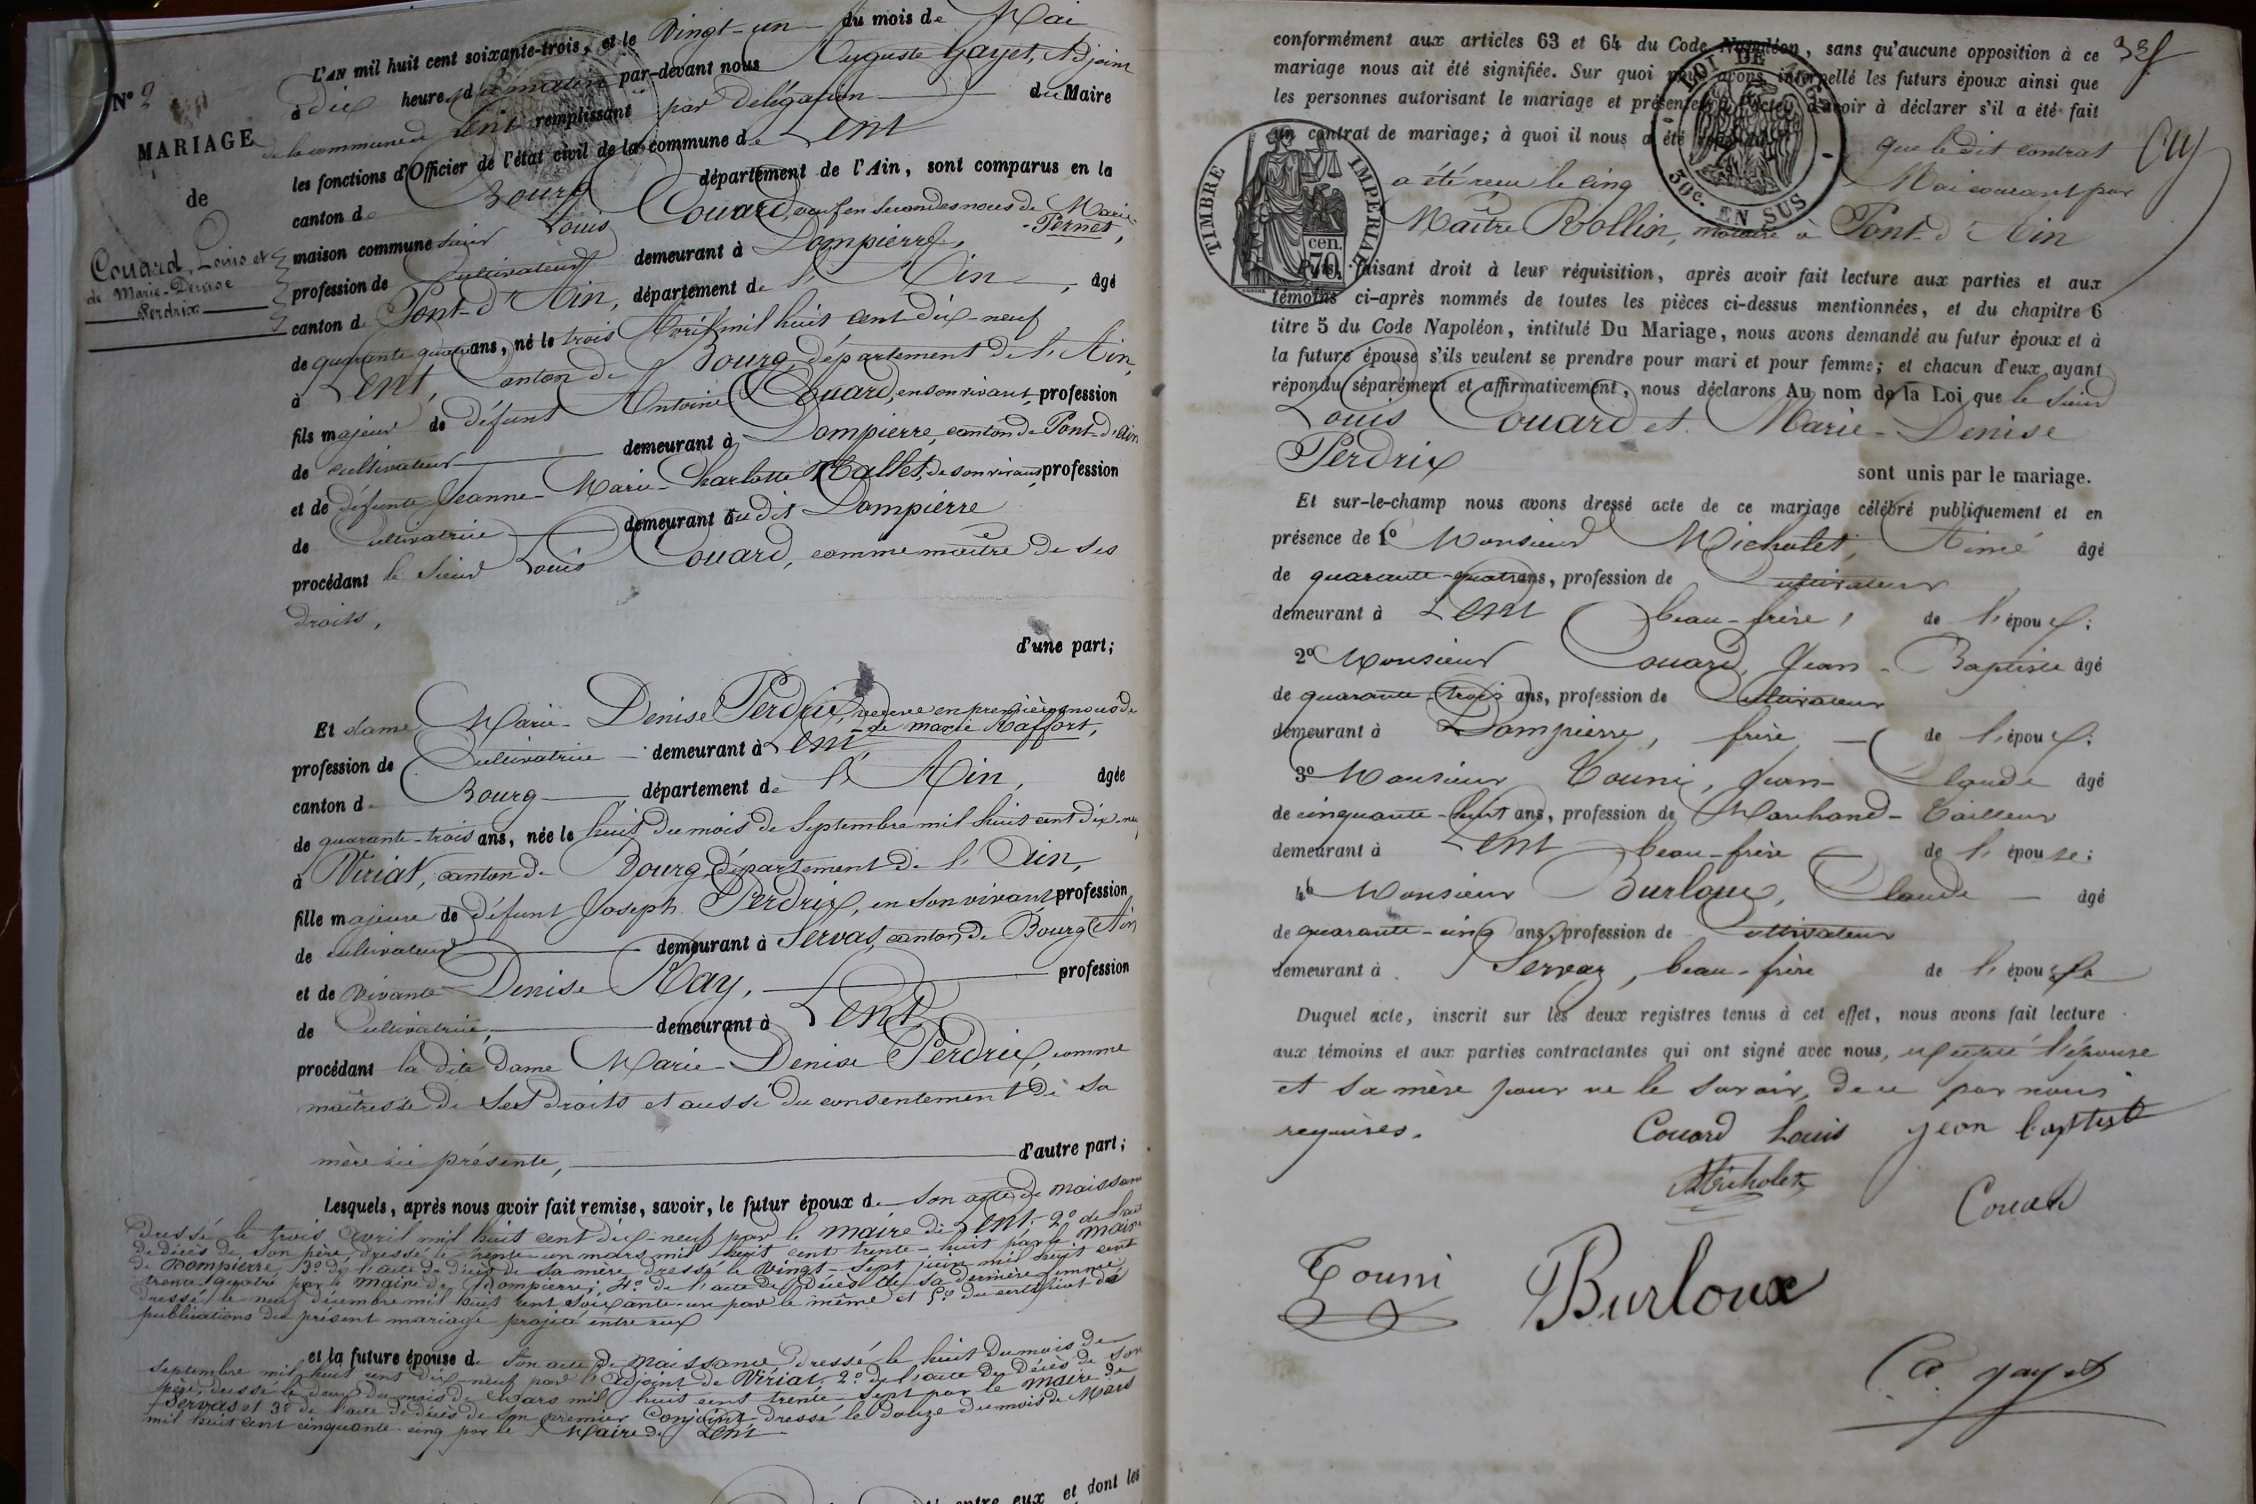 N° 2
MARIAGE
de
Couard, Louis et
de Marie-Denise
Perdrix
L'AN mil huit cent soixante-trois, et le Vingt-un du mois de Mai
à dix heures du matin par-devant nous Auguste Gayet, Adjoint
de la commune de Lent remplissant par Délégation du Maire
les fonctions d'Officier de l'état civil de la commune de Lent
canton de Bourg département de l'Ain, sont comparus en la
maison commune sieur Louis Couard, veuf en secondes noces de Marie
Pernet,
profession de Cultivateur demeurant à Dompierre,
canton de Pont-d'Ain, département de l'Ain, âgé
de quarante quatre ans, né le trois Avril mil huit cent dix-neuf
à Lent, canton de Bourg, département de l'Ain,
fils majeur de défunt Antoine Couard, en son vivant, profession
de cultivateur demeurant à Dompierre, canton de Pont-d'Ain
et de défunte Jeanne-Marie-Charlotte Mallet, de son vivant profession
de Cultivatrice demeurant audit Dompierre
procédant le sieur Louis Couard, comme maître de ses
droits,
d'une part;
Et dame Marie-Denise Perdrix, veuve en premières noces de
de marie Raffort,
profession de Cultivatrice demeurant à Lent,
canton de Bourg département de l'Ain, âgée
de quarante-trois ans, née le huit du mois de Septembre mil huit cent dix-neuf
à Viriat, canton de Bourg, département de l'Ain,
fille majeure de défunt Joseph Perdrix, en son vivant profession
de cultivateur demeurant à Servas, canton de Bourg (Ain
et de vivante Denise Ray, profession
de Cultivatrice, demeurant à Lent,
procédant la dite Dame Marie-Denise Perdrix, comme
maîtresse de ses droits et aussi du consentement de sa
mère ici présente, d'autre part;
Lesquels, après nous avoir fait remise, savoir, le futur époux de son acte de naissance
dressé le trois avril mil huit cent dix-neuf par le maire de Lent; 2° de l'acte
de décès de son père, dressé le trente-un mars mil huit cent trente-huit par le maire
de Dompierre, 3° de l'acte de décès de sa mère dressé le vingt-sept juin mil huit cent
trente quatre par le maire de Dompierre; 4° de l'acte de décès de sa dernière femme,
dressé le neuf décembre mil huit cent soixante-un par le même et 5° du certificat de
publications du présent mariage projeté entre eux
et la future épouse de Son acte de naissance dressé le huit du mois de
septembre mil huit cent dix-neuf par l'adjoint de Viriat. 2° de l'acte de décès de son
père, dressé le deux du mois de Mars mil huit cent trente-sept par le maire de
Servas et 3° de l'acte de décès de son premier Conjoint dressé le douze du mois de Mars
mil huit cent cinquante-cinq par le Maire de Lent
entre eux et dont les
conformément aux articles 63 et 64 du Code Napoléon, sans qu'aucune opposition à ce
mariage nous ait été signifiée. Sur quoi nous avons interpellé les futurs époux ainsi que
les personnes autorisant le mariage et présentes à l'acte, d'avoir à déclarer s'il a été fait
un contrat de mariage; à quoi il nous a été répondu que le dit contrat
a été reçu le cinq Mai courant par
Maître Rollin, notaire à Pont-d'Ain
Puis, faisant droit à leur réquisition, après avoir fait lecture aux parties et aux
témoins ci-après nommés de toutes les pièces ci-dessus mentionnées, et du chapitre 6
titre 5 du Code Napoléon, intitulé Du Mariage, nous avons demandé au futur époux et à
la future épouse s'ils veulent se prendre pour mari et pour femme; et chacun d'eux ayant
répondu séparément et affirmativement, nous déclarons Au nom de la Loi que le Sieur
Louis Couard et Marie-Denise
Perdrix
sont unis par le mariage.
Et sur-le-champ nous avons dressé acte de ce mariage célébré publiquement et en
présence de 1° Monsieur Micholet, Aimé âgé
de quarante-quatre ans, profession de Cultivateur
demeurant à Lent beau-frère, de l'époux;
2° Monsieur Couard, Jean-Baptiste âgé
de quarante-trois ans, profession de Cultivateur
demeurant à Dompierre, frère de l'époux;
3° Monsieur Touni, Jean-Claude âgé
de cinquante-huit ans, profession de Marchand-Tailleur
demeurant à Lent beau-frère de l'épouse;
4° Monsieur Burloux, Claude âgé
de quarante-cinq ans, profession de Cultivateur
demeurant à Servaz, beau-frère de l'épouse
Duquel acte, inscrit sur les deux registres tenus à cet effet, nous avons fait lecture
aux témoins et aux parties contractantes qui ont signé avec nous, excepté l'épouse
et sa mère pour ne le savoir, de ce par nous
requises.
Couard Louis jean baptist
Micholet Couard
Touni Burloux
A gayet
TIMBRE IMPÉRIAL
70 cen.
LOI DE 1862
30c. EN SUS